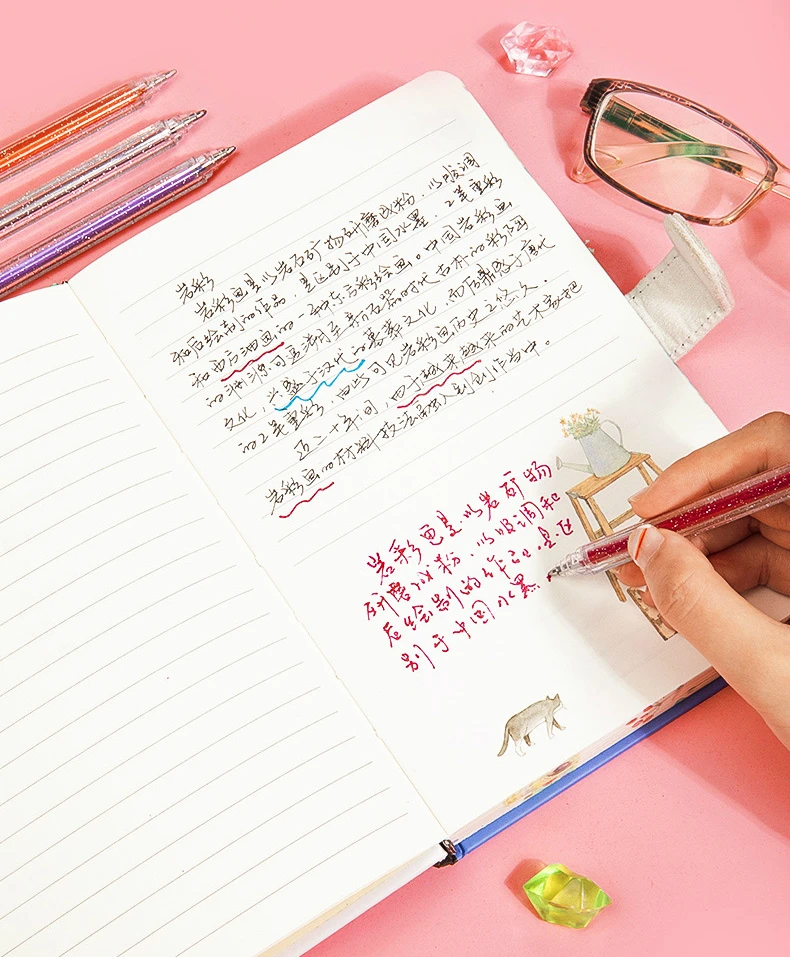 岩彩
岩彩画是以岩石矿物研磨成粉，以胶调
和后绘制的作品，是区别于中国水墨、工笔重彩
和西方油画的一种东方彩绘画。中国岩彩画
的渊源可追溯至新石器时代古朴的彩陶
文化，兴盛于汉代的墓葬文化，而后鼎盛于唐代
的工笔重彩，由此可见岩彩画历史之悠久。
近二十年间，由于越来越来的艺术家把
岩彩画的材料技法融入到创作当中。
岩彩画是以岩石矿物
研磨成粉，以胶调和
后绘制的作品，是区
别于中国水墨、